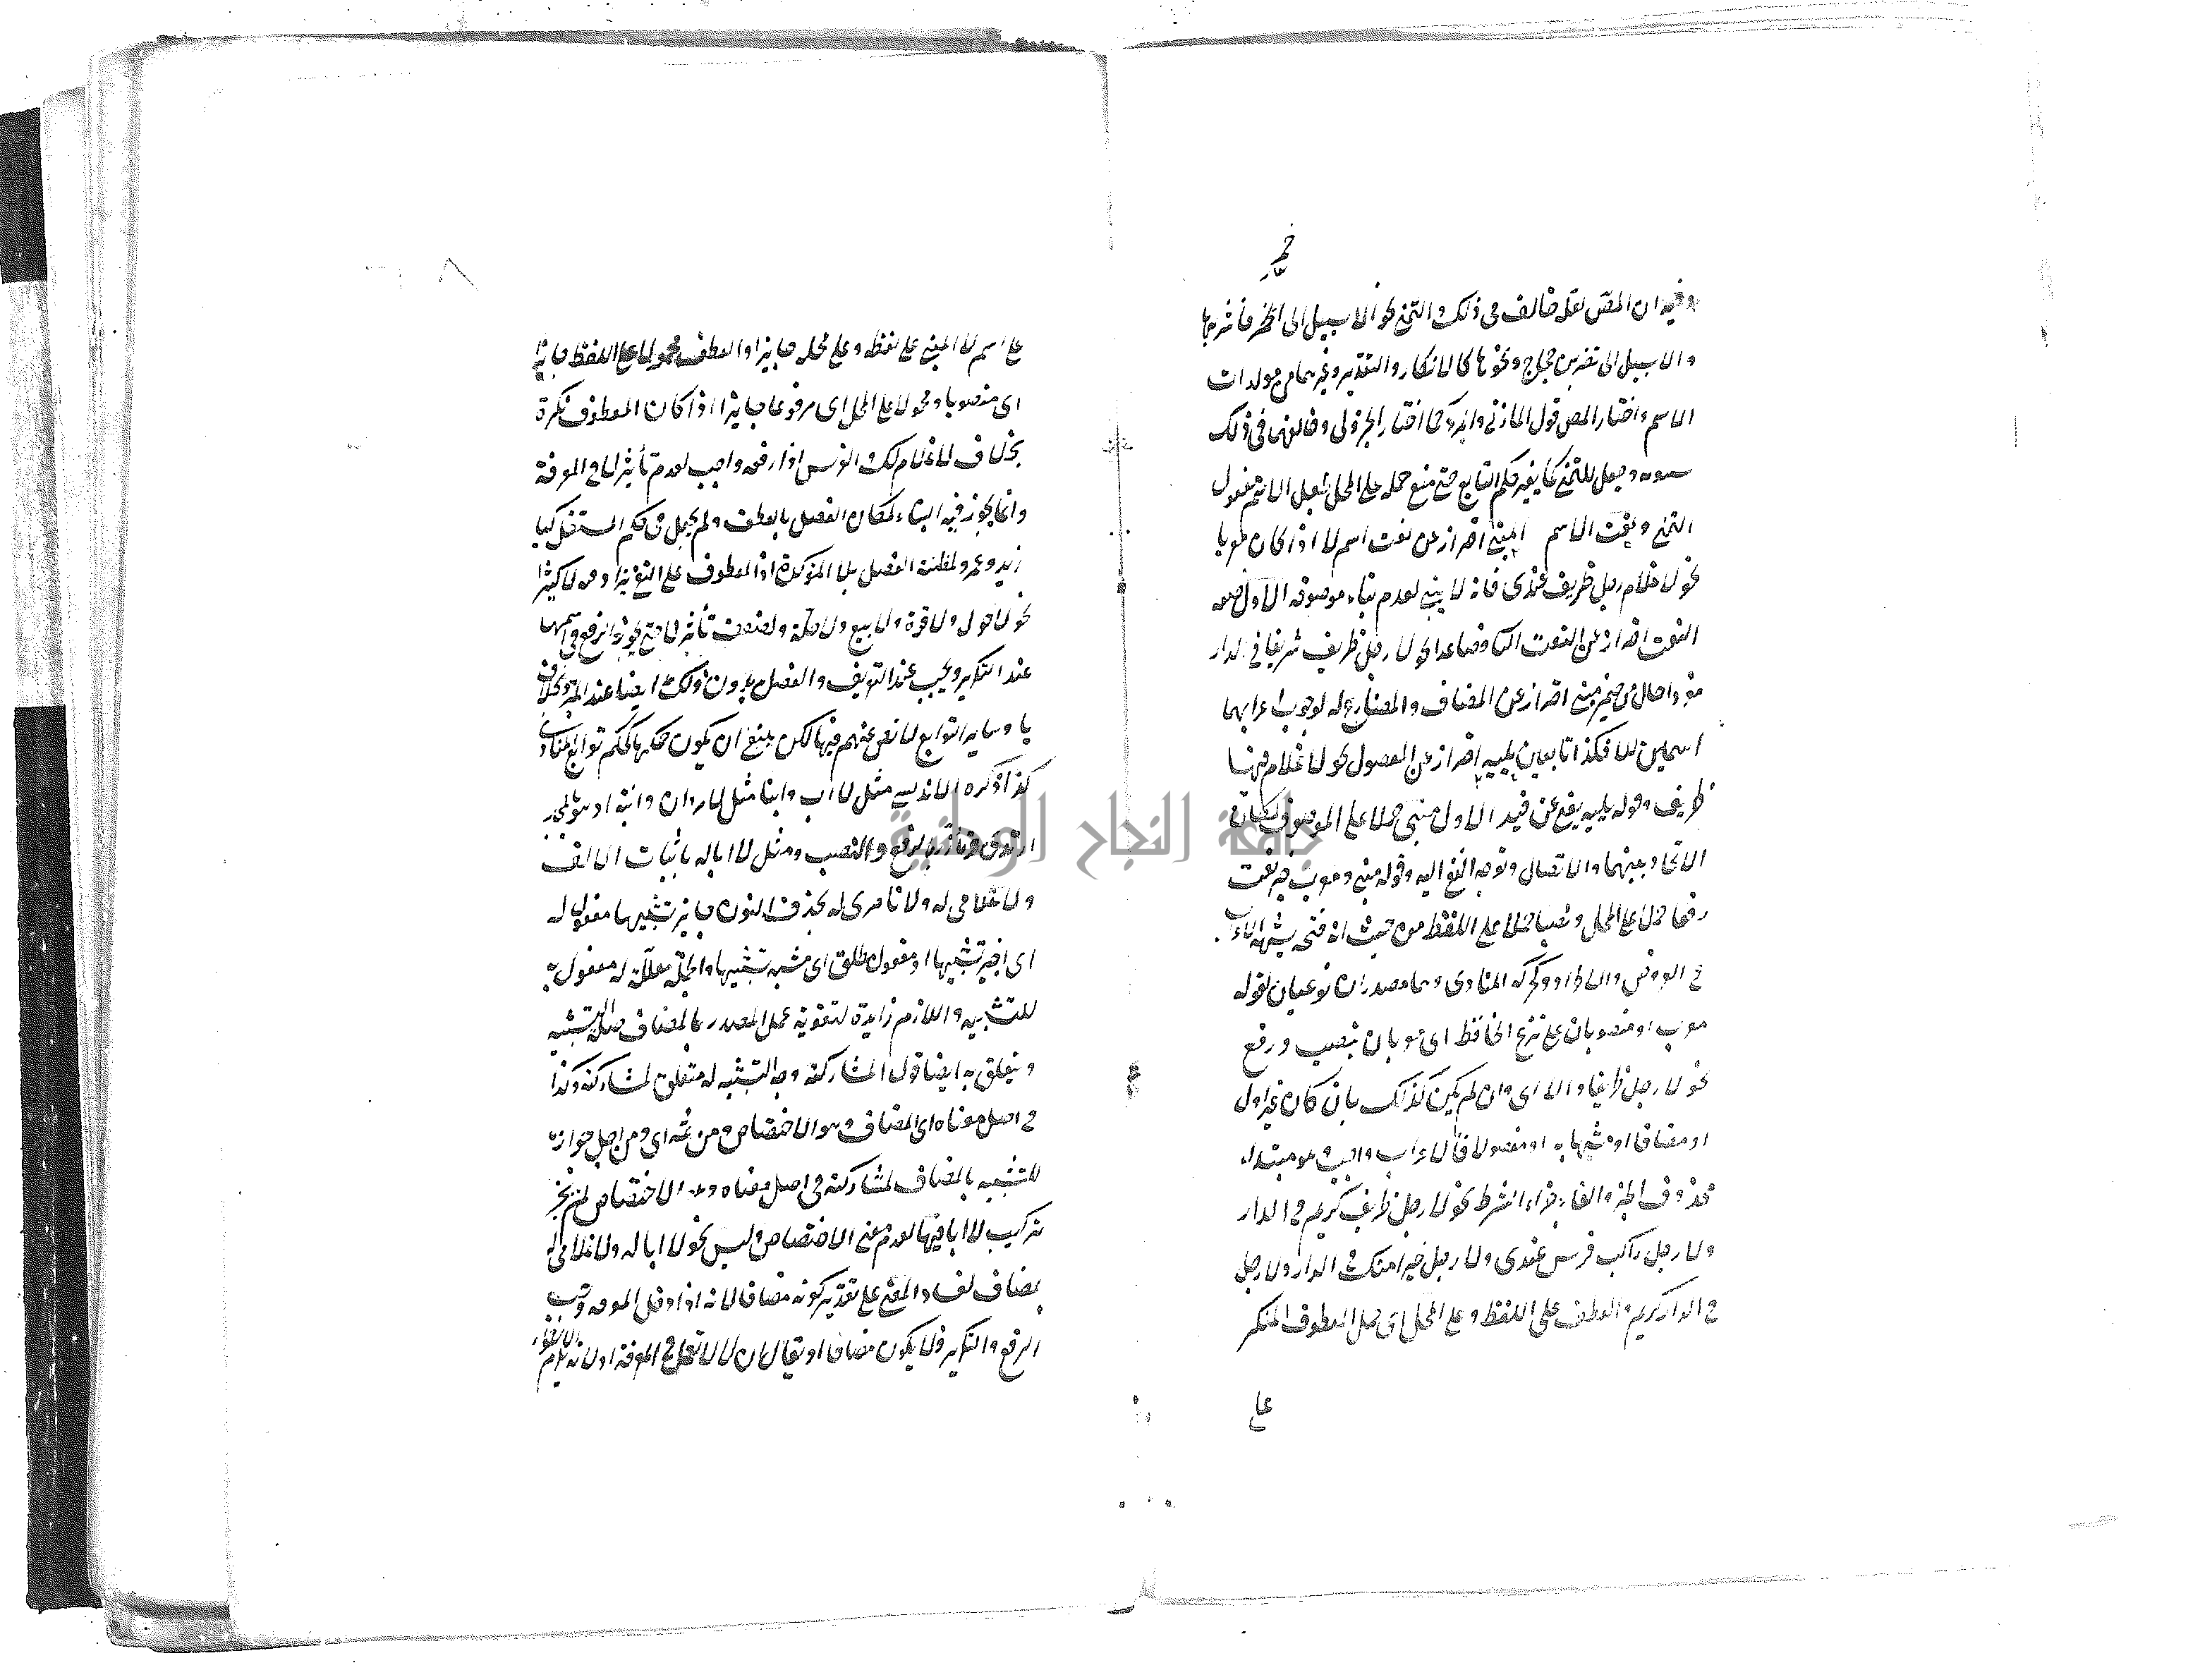 خمر
وفيه ان المص نقل خالف في ذلك والتمني نحو الا سبيل الى الخمر فاشربها
والا سبيل الى نضر بن حجاج ونحوها كالانكار والتقدير وغيرهما من مولدات
الاسم واختار المص قول المازني والمبرد كما اختار الجزولي وخالفهما في ذلك
وجعل للتمني حكم التابع حتى منع حمله على المحل
التمني ونعت الاسم المبني احتراز عن نعت اسم لا اذا كان معربا
نحو لا غلام رجل ظريف عندي فانه لا يبنى لعدم بناء موصوفه الاول صفة
النعت احتراز عن النعت الثاني فصاعدا نحو لا رجل ظريف شريفا في الدار
مفردا حال من ضمير مبني احتراز عن المضاف والمضارع له لوجوب اعرابهما
اسمين للا فكذا تابعين يليه احتراز عن المفصول نحو لا غلام فيها
ظريف وقوله يليه يغني عن قيد الاول مبني حملا على الموصوف لمكان
الاتحاد بينهما والاتصال وتوجه النفي اليه وقوله مبني ومعرب خبر نعت
رفعا حملا على المحل ونصبا حملا على اللفظ من حيث ان فتحه يشبه الاعراب
في العروض والاطراد وكحركة المنادى وهما مصدران نوعيان لقوله
معرب او منصوبان على نزع الخافض اى معربان بنصب ورفع
نحو لا رجل ظريفا والا اى وان لم يكن كذلك بان كان غير اول
او مضافا او مشبها به او مفصولا فالاعراب واجب هو مبتدا
محذوف الخبر والفاء جزاء الشرط نحو لا رجل ظريف كريم في الدار
ولا رجل راكب فرس عندى ولا رجل خيرا منك في الدار ولا رجل
في الدار كريم والعطف على اللفظ وعلى المحل اى حمل المعطوف المنكر
على
٦٨
على اسم لا المبني على لفظه وعلى محله جايز او العطف محمولا على اللفظ جايز
اى منصوبا ومحمولا على المحل اى مرفوعا جايز اذا كان المعطوف نكرة
بخلاف لا غلام لك والفرس اذا رفعه واجب لعدم تأثير لا في المعرفة
وانما يجوز فيه البناء لمكان الفصل بالعطف ولم يجعل في حكم المستقل كيا
زيد وعمرو لمظنة الفصل بلا المؤكدة اذ المعطوف على المنفي يزاد فيه لا كثيرا
نحو لا حول ولا قوة ولا بيع ولا خلة ولضعف تأثير لا حتى يجوز الرفع في اسمها
عند التكرير ويجب عند التعريف والفصل بدون ذلك ايضا عند المبرد بخلاف
يا وساير التوابع لا نص عنهم فيها لكن ينبغي ان يكون حكمها كحكم توابع المنادى
كذا ذكره الاندلسي مثل لا اب وابنا مثل مروان وابنه اذ هو بالمجد
ارتدى وتأزرا بالرفع والنصب ومثل لا ابا له باثبات الالف
ولا غلامي له ولا ناصري له بحذف النون جايز تشبيها مفعول له
اى اجيز تشبيها او مفعول مطلق اى مشبه تشبيها والجملة معللة له مفعول به
للتشبيه واللازم زايدة لتقوية عمل المصدر بالمضاف صلة التشبيه
ويتعلق به ايضا قوله لمشاركته وجه التشبيه له متعلق لمشاركته وكذا
في اصل معناه اى المضاف وهو الاختصاص ومن ثمه اى ومن اجل جوازه
للتشبيه بالمضاف لمشاركته في اصل معناه وهو الاختصاص لم يجز
تركيب لا ابا فيها لعدم معنى الاختصاص وليس نحو لا ابا له ولا غلامي له
بمضاف لفساد المعنى على تقدير كونه مضافا لانه اذا دخل المعرفة وجب
الرفع والتكرير فلا يكون مضافا او يقال ان لا لا تعمل في المعرفة او لانه يلزم
جامعة النجاح الوطنية